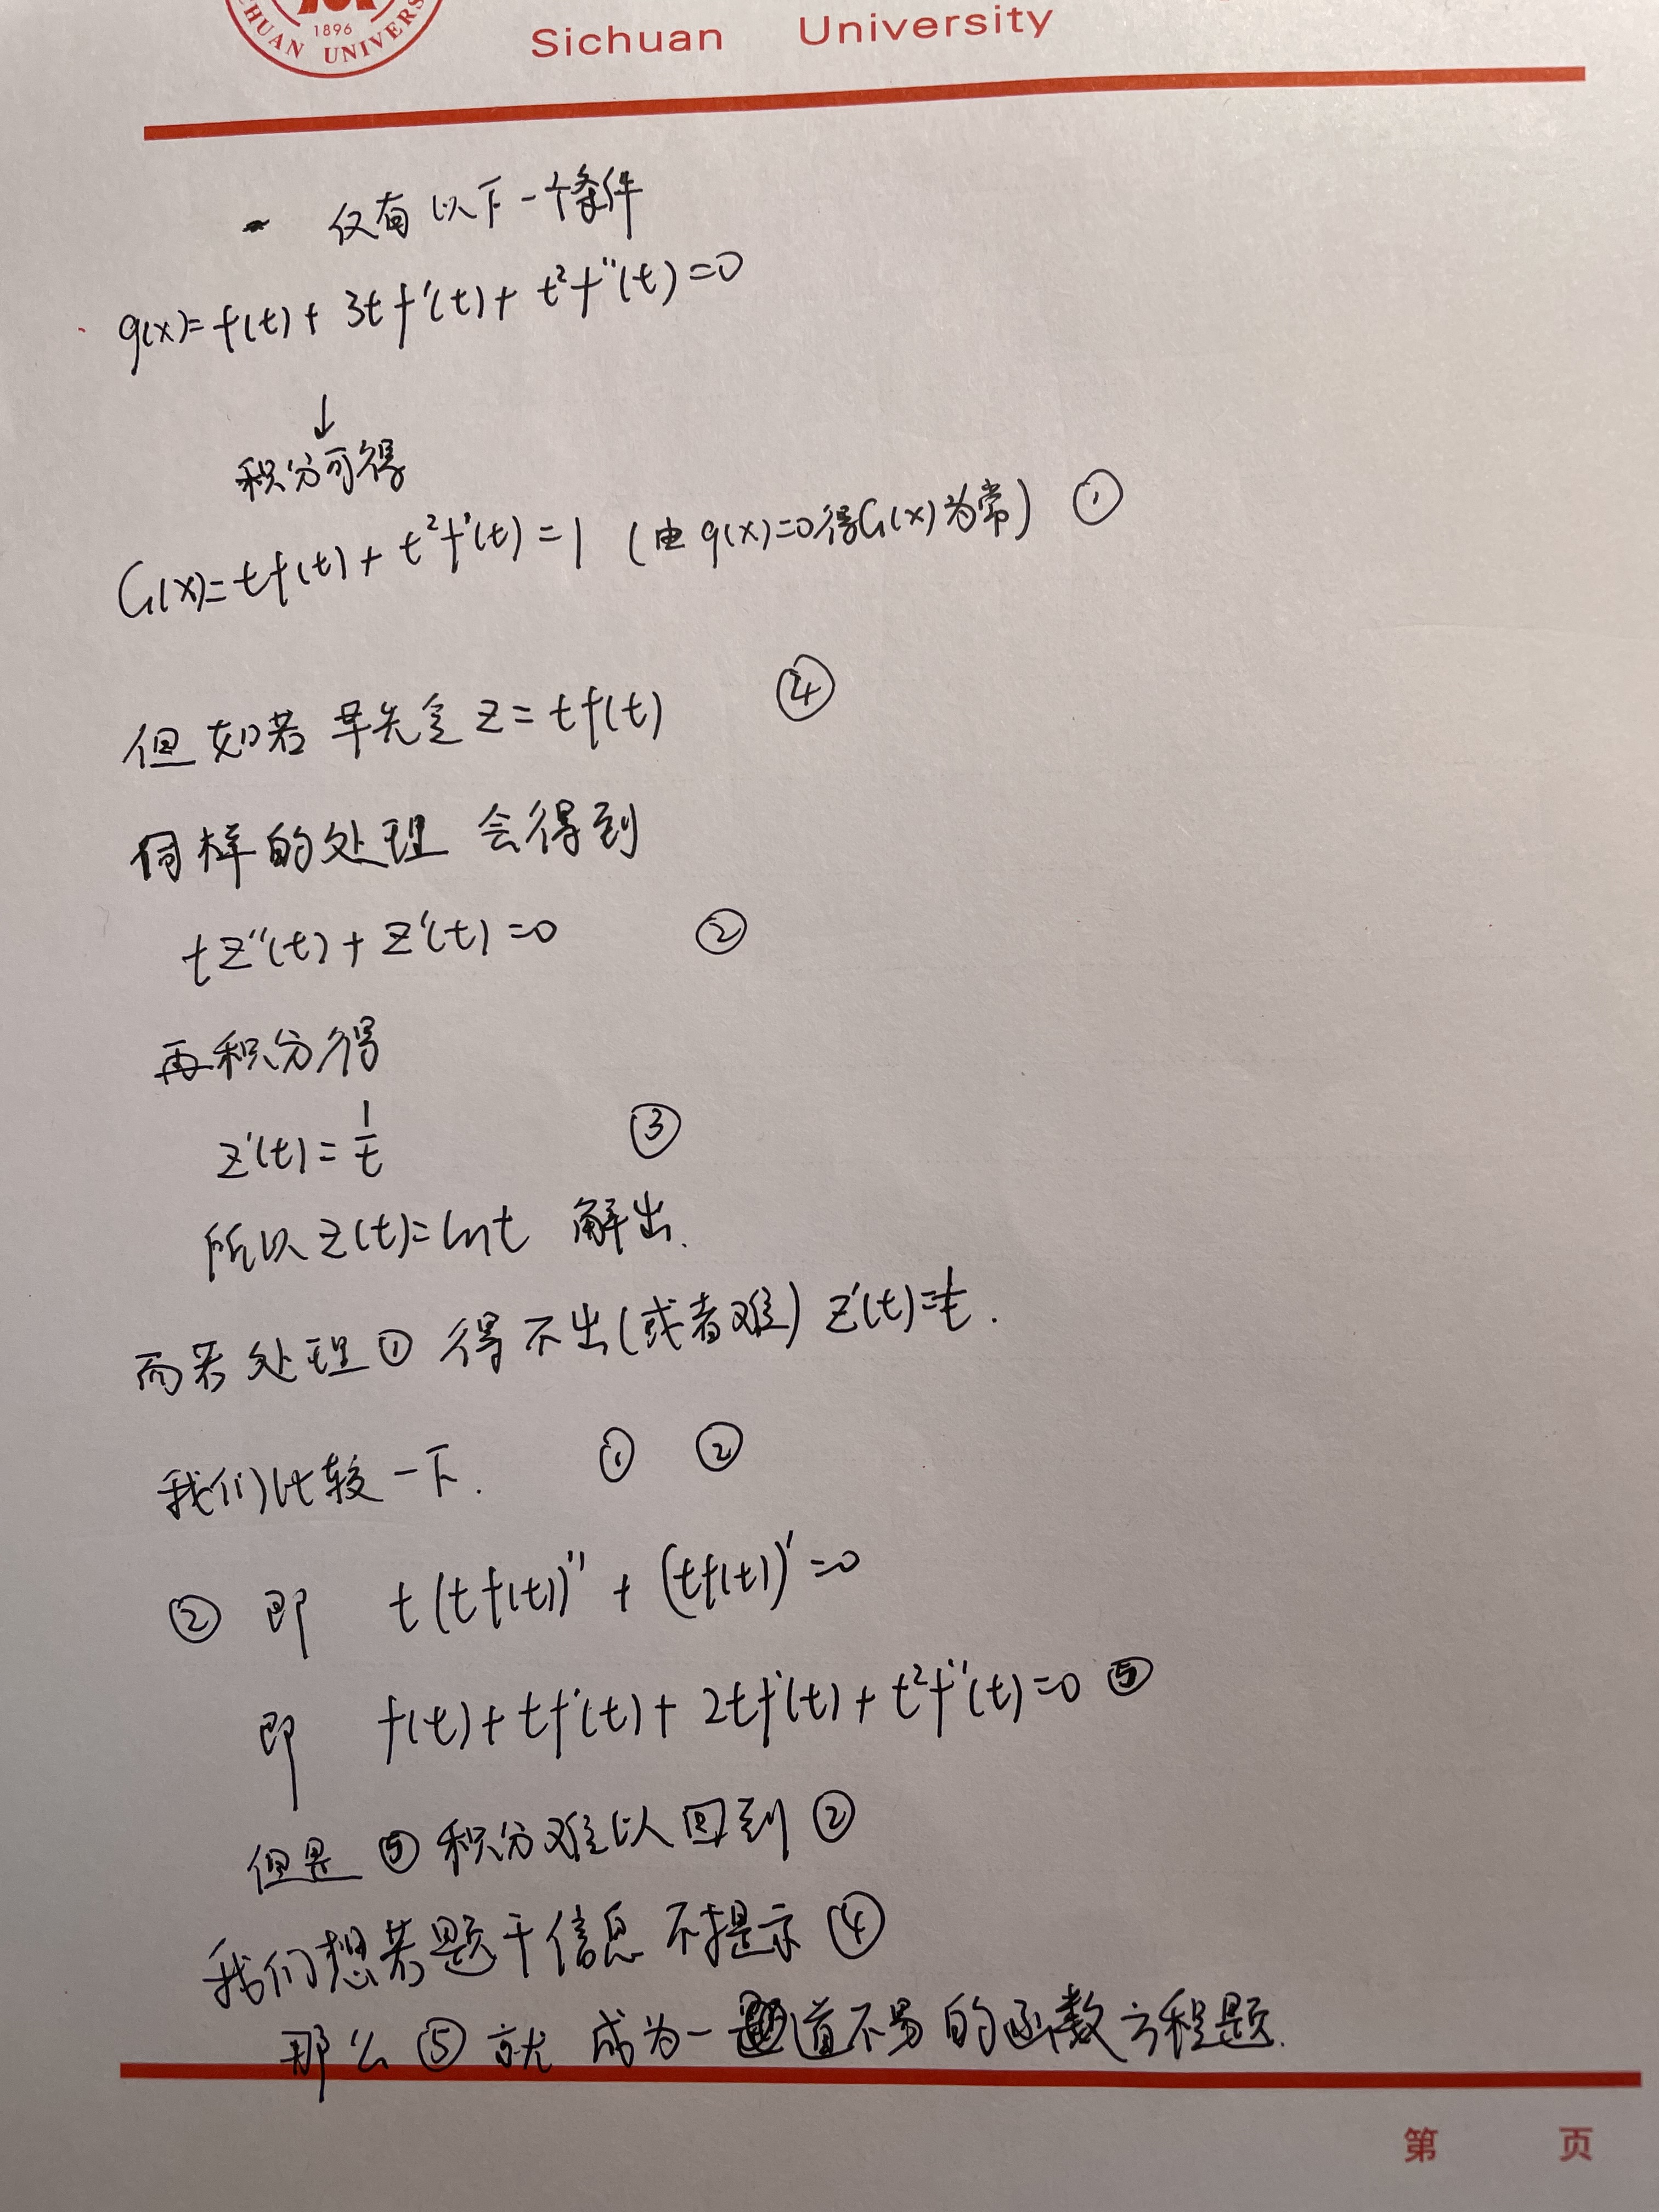 1896
HUAN UNIVERS
Sichuan University
仅有以下一个条件
g(x)=f(t)+3tf'(t)+t²f''(t)=0
↓
积分可得
G(x)=tf(t)+t²f'(t)=1 (由g(x)=0得G(x)为常) ①
但如若早先令z=tf(t) ④
同样的处理 会得到
tz''(t)+z'(t)=0 ②
再积分得
z'(t)=1/t ③
所以z(t)=lnt 解出.
而若处理① 得不出(或者难) z'(t)=1/t.
我们比较一下. ① ②
② 即 t(tf(t))''+(tf(t))'=0
即 f(t)+tf'(t)+2tf'(t)+t²f''(t)=0 ⑤
但是⑤积分难以回到②
我们想若题干信息不提示④
那么⑤就成为一道不易的函数方程题.
第 页